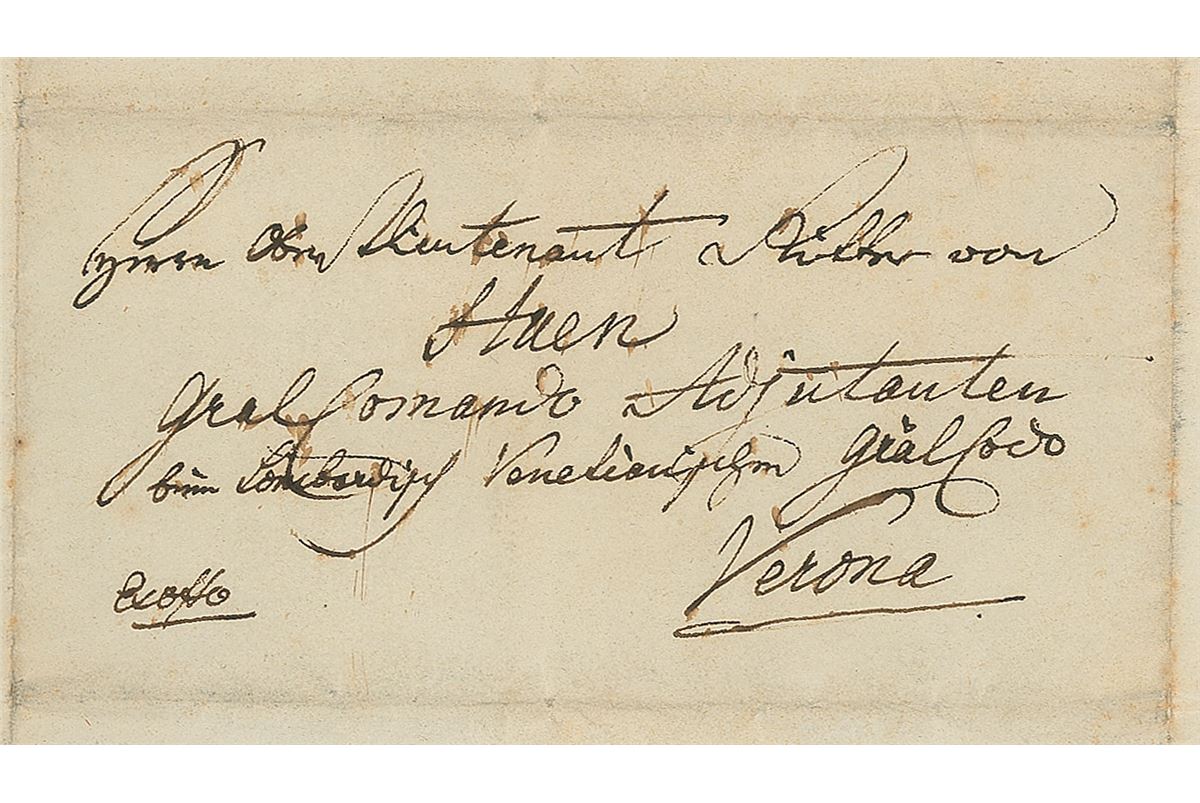 Herrn Ober Lieutenant Ritter von
Haen
Gral Comando Adjutanten
beim Lombardisch Venetianischen Gräl Codo
Verona
Exoffo